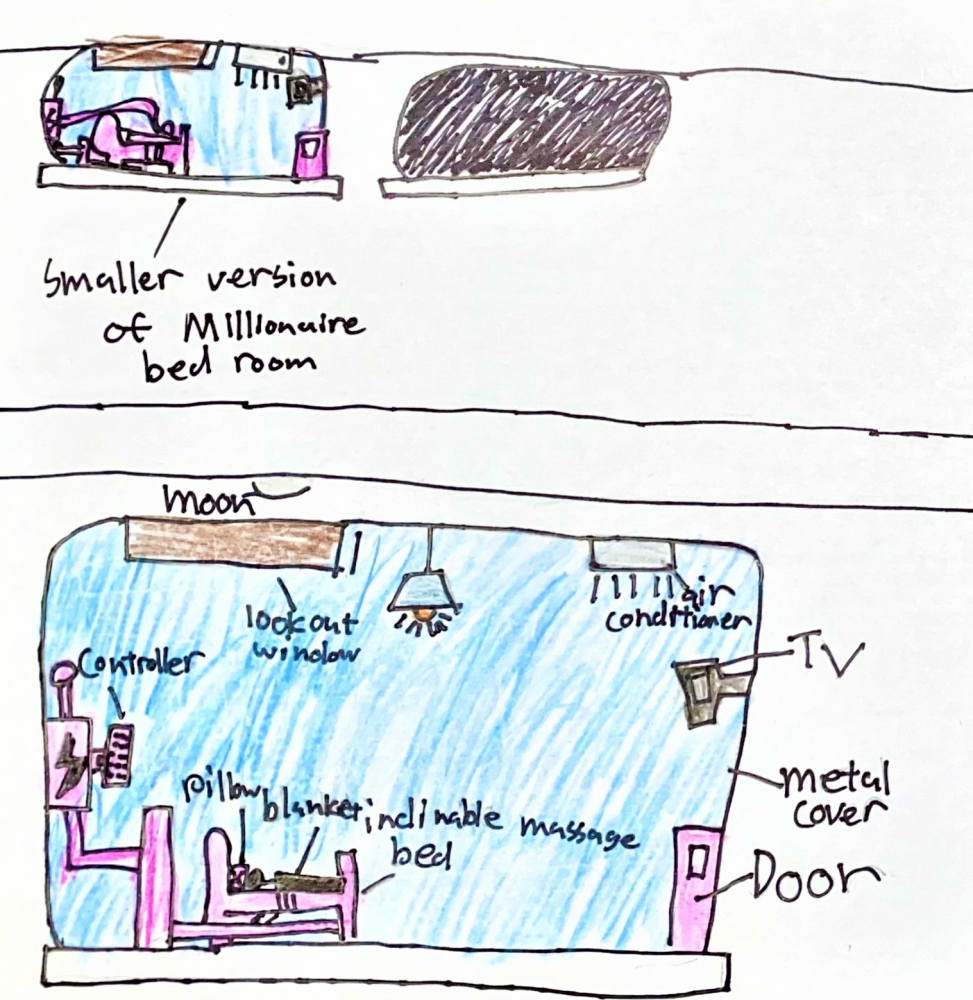 Smaller version
of Millionaire
bed room
Moon
lookout
window
air
conditioner
Controller
TV
metal
cover
pillow
blanket
inclinable massage
bed
Door